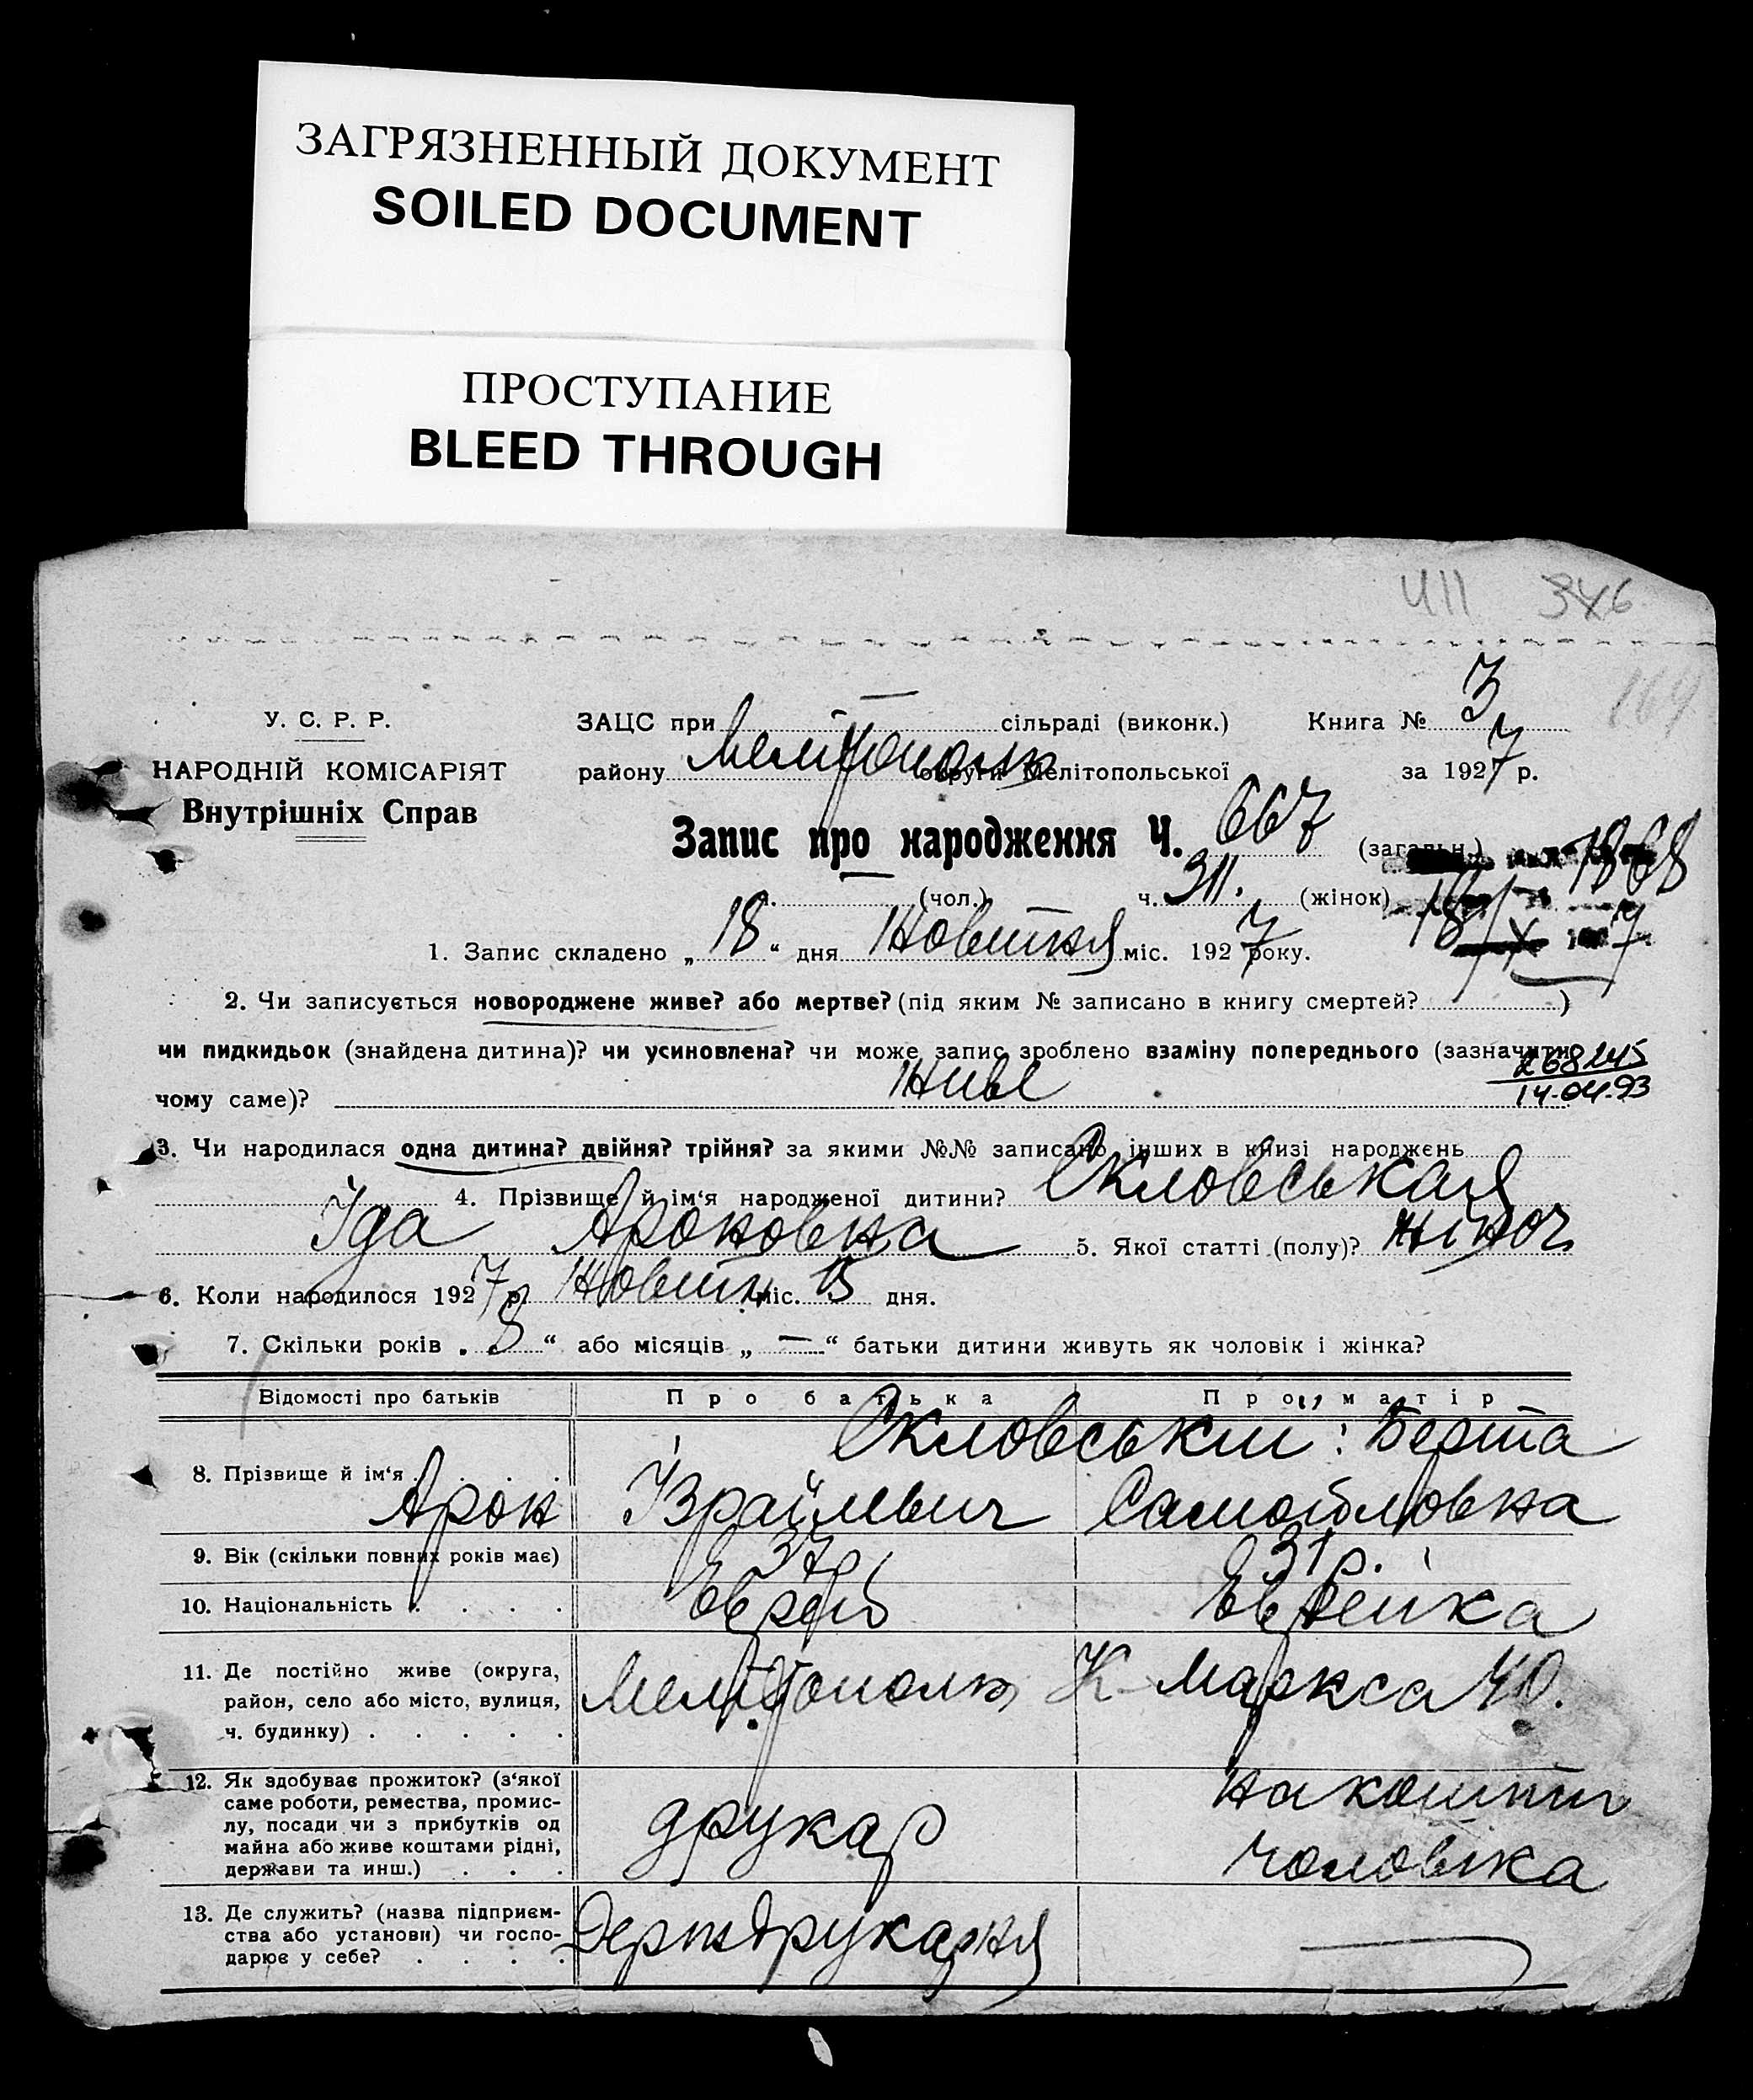 ЗАГРЯЗНЕННЫЙ ДОКУМЕНТ
SOILED DOCUMENT
ПРОСТУПАНИЕ
BLEED THROUGH
411 346
169
У. С. Р. Р.
НАРОДНІЙ КОМІСАРІЯТ
Внутрішніх Справ
ЗАЦС при сільраді (виконк.) Книга № 3
району Мелітополь округи Мелітопольської за 1927 р.
Запис про народження Ч. 667 (загальн.)
(чол.) ч. 311. (жінок)
1. Запис складено „18“ дня Жовтня міс. 1927 року.
2. Чи записується новороджене живе? або мертве? (під яким № записано в книгу смертей? )
чи пидкидьок (знайдена дитина)? чи усиновлена? чи може запис зроблено взаміну попереднього (зазначити
чому саме)? Живе
268245
14-04-93
3. Чи народилася одна дитина? двійня? трійня? за якими №№ записано інших в книзі народжень
4. Прізвище й ім‘я народженої дитини? Скловськая
Іда Ароновна 5. Якої статті (полу)? жіноч
6. Коли народилося 1927 р. Жовтн міс. 15 дня.
7. Скільки років „8“ або місяців „—“ батьки дитини живуть як чоловік і жінка?
Відомості про батьків Про батька Про матір
8. Прізвище й ім‘я Скловськи: Берта
Арон Ізраїлевич Самойловна
9. Вік (скільки повних років має) 37р 31р.
10. Національність Еврей Еврейка
11. Де постійно живе (округа,
район, село або місто, вулиця,
ч. будинку) Мелітополь К-Маркса 40.
12. Як здобуває прожиток? (з‘якої
саме роботи, ремества, промис-
лу, посади чи з прибутків од
майна або живе коштами рідні,
держави та инш.) друкар на кошти
чоловіка
13. Де служить? (назва підприєм-
ства або установи) чи госпо-
дарює у себе? Держдрукарня —